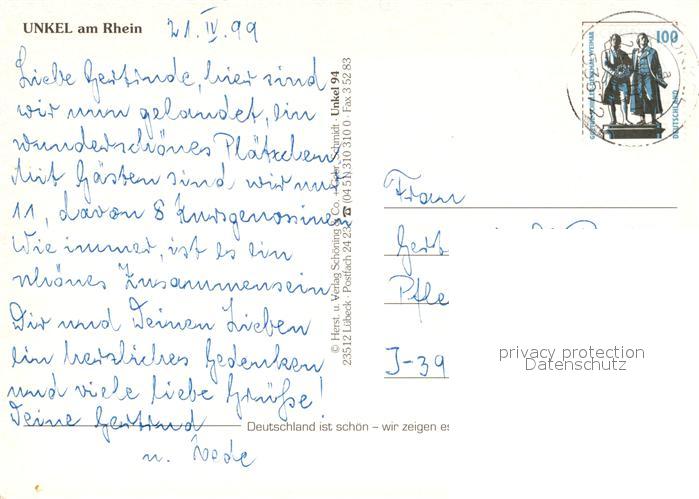 UNKEL am Rhein 21. IV. 99
Liebe Gertinde, hier sind
wir nun gelandet, ein
wunderschönes Plätzchen
Mit Gästen sind wir nur
11, davon 8 Kursgenossinen
Wie immer, ist es ein
schönes Zusammensein
Dir und Deinen Lieben
ein herzliches Gedenken
und viele liebe Grüße!
Deine Gertrud
u.
© Herst. u. Verlag Schöning & Co. + Gebr. Schmidt · Unkel 94
23512 Lübeck · Postfach 24 23 ☎ (04 51) 310 310 0 · Fax 3 52 83
Deutschland ist schön – wir zeigen es
100
GOETHE-SCHILLER-DENKMAL WEIMAR
DEUTSCHLAND
Frau
Gert
Pfle
J-39
privacy protection
Datenschutz